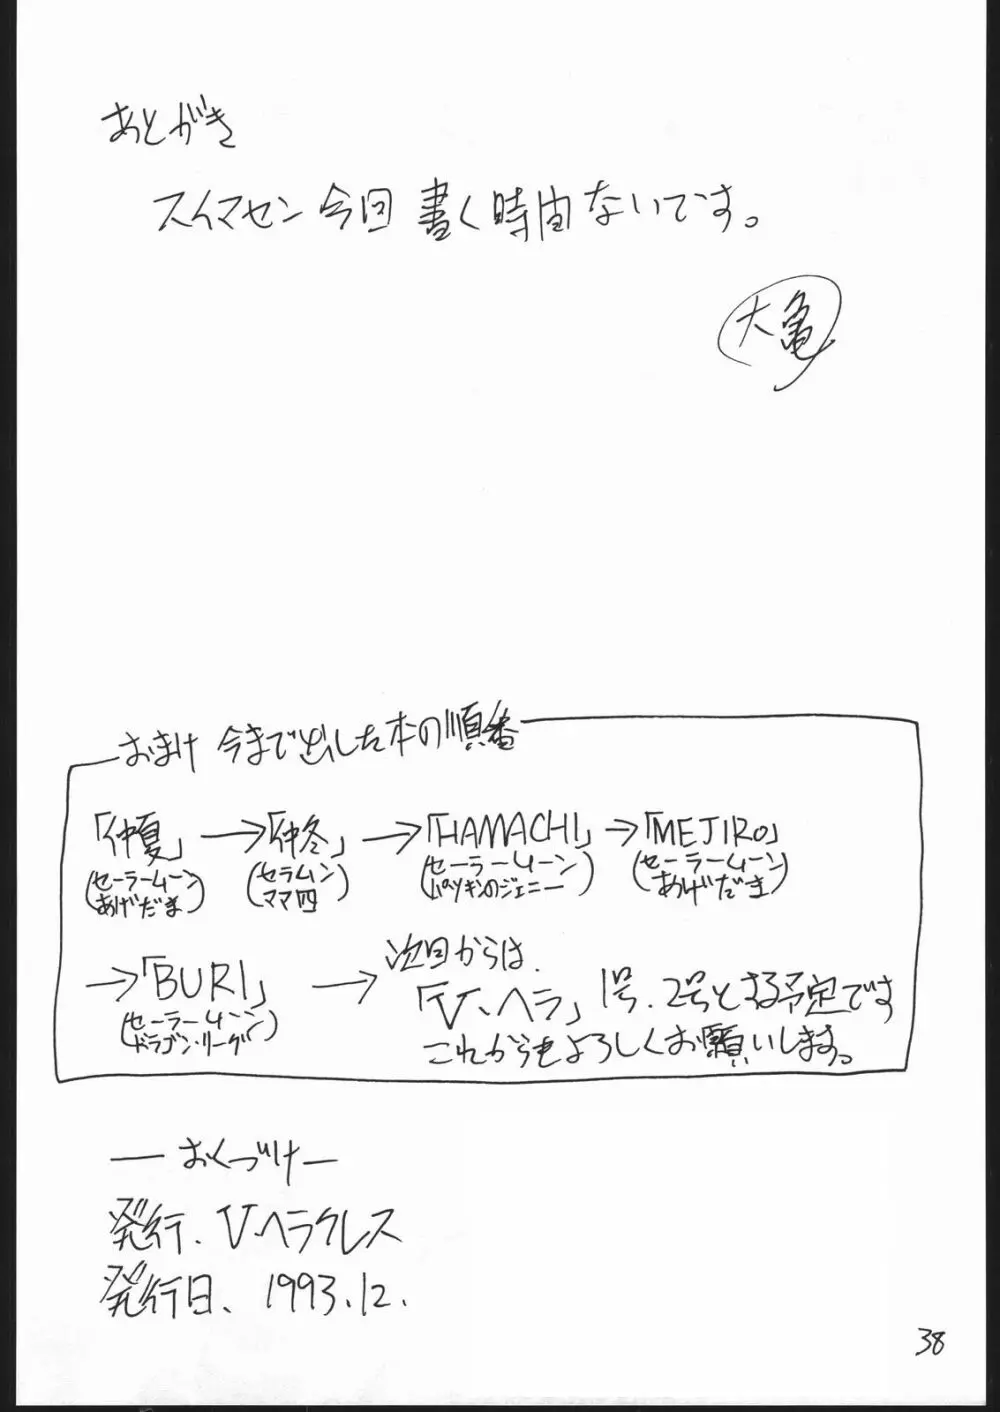 あとがき
スイマセン今回書く時間ないです。
大亀
おまけ 今まで出した本の順番
「仲夏」→「仲冬」→「HAMACHI」→「MEJIRO」
(セーラームーン あげだま) (セラムン ママ四) (セーラームーン パツキンのジェニー) (セーラームーン あげだま)
→「BURI」→ 次回からは、
(セーラームーン ドラゴン・リーグ)
「V、ヘラ」1号、2号とする予定です
これからもよろしくお願いします。
— おくづけ —
発行、V、ヘラクレス
発行日、1993.12.
38